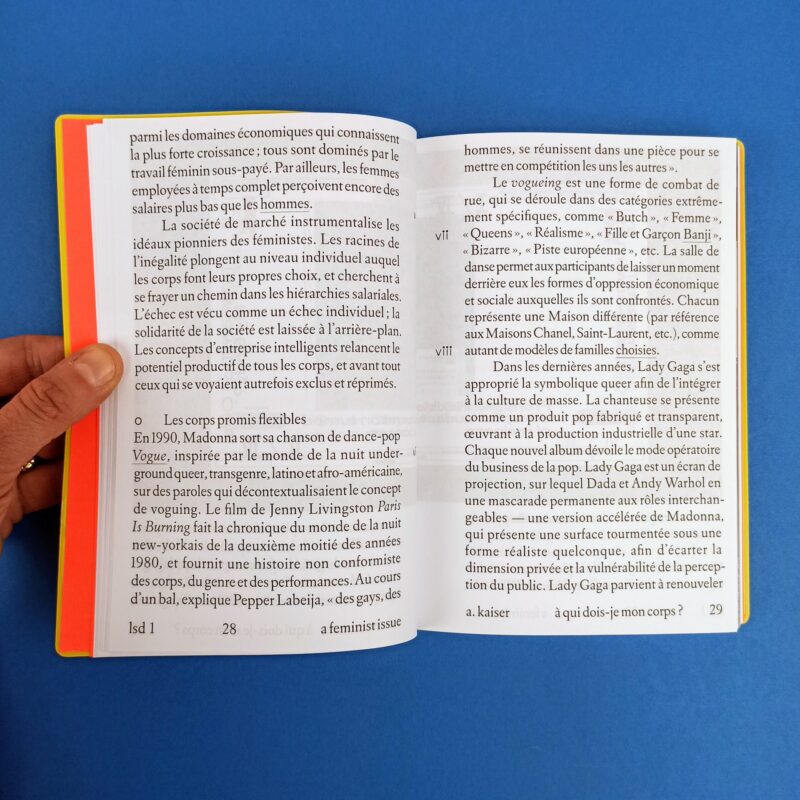 parmi les domaines économiques qui connaissent
la plus forte croissance ; tous sont dominés par le
travail féminin sous-payé. Par ailleurs, les femmes
employées à temps complet perçoivent encore des
salaires plus bas que les hommes.
La société de marché instrumentalise les
idéaux pionniers des féministes. Les racines de
l'inégalité plongent au niveau individuel auquel
les corps font leurs propres choix, et cherchent à
se frayer un chemin dans les hiérarchies salariales.
L'échec est vécu comme un échec individuel ; la
solidarité de la société est laissée à l'arrière-plan.
Les concepts d'entreprise intelligents relancent le
potentiel productif de tous les corps, et avant tout
ceux qui se voyaient autrefois exclus et réprimés.
o Les corps promis flexibles
En 1990, Madonna sort sa chanson de dance-pop
Vogue, inspirée par le monde de la nuit under-
ground queer, transgenre, latino et afro-américaine,
sur des paroles qui décontextualisaient le concept
de voguing. Le film de Jenny Livingston Paris
Is Burning fait la chronique du monde de la nuit
new-yorkais de la deuxième moitié des années
1980, et fournit une histoire non conformiste
des corps, du genre et des performances. Au cours
d'un bal, explique Pepper Labeija, « des gays, des
lsd 1 28 a feminist issue
hommes, se réunissent dans une pièce pour se
mettre en compétition les uns les autres ».
Le vogueing est une forme de combat de
rue, qui se déroule dans des catégories extrême-
ment spécifiques, comme « Butch », « Femme »,
vii « Queens », « Réalisme », « Fille et Garçon Banji »,
« Bizarre », « Piste européenne », etc. La salle de
danse permet aux participants de laisser un moment
derrière eux les formes d'oppression économique
et sociale auxquelles ils sont confrontés. Chacun
représente une Maison différente (par référence
aux Maisons Chanel, Saint-Laurent, etc.), comme
viii autant de modèles de familles choisies.
Dans les dernières années, Lady Gaga s'est
approprié la symbolique queer afin de l'intégrer
à la culture de masse. La chanteuse se présente
comme un produit pop fabriqué et transparent,
œuvrant à la production industrielle d'une star.
Chaque nouvel album dévoile le mode opératoire
du business de la pop. Lady Gaga est un écran de
projection, sur lequel Dada et Andy Warhol en
une mascarade permanente aux rôles interchan-
geables — une version accélérée de Madonna,
qui présente une surface tourmentée sous une
forme réaliste quelconque, afin d'écarter la
dimension privée et la vulnérabilité de la percep-
tion du public. Lady Gaga parvient à renouveler
a. kaiser à qui dois-je mon corps ? 29